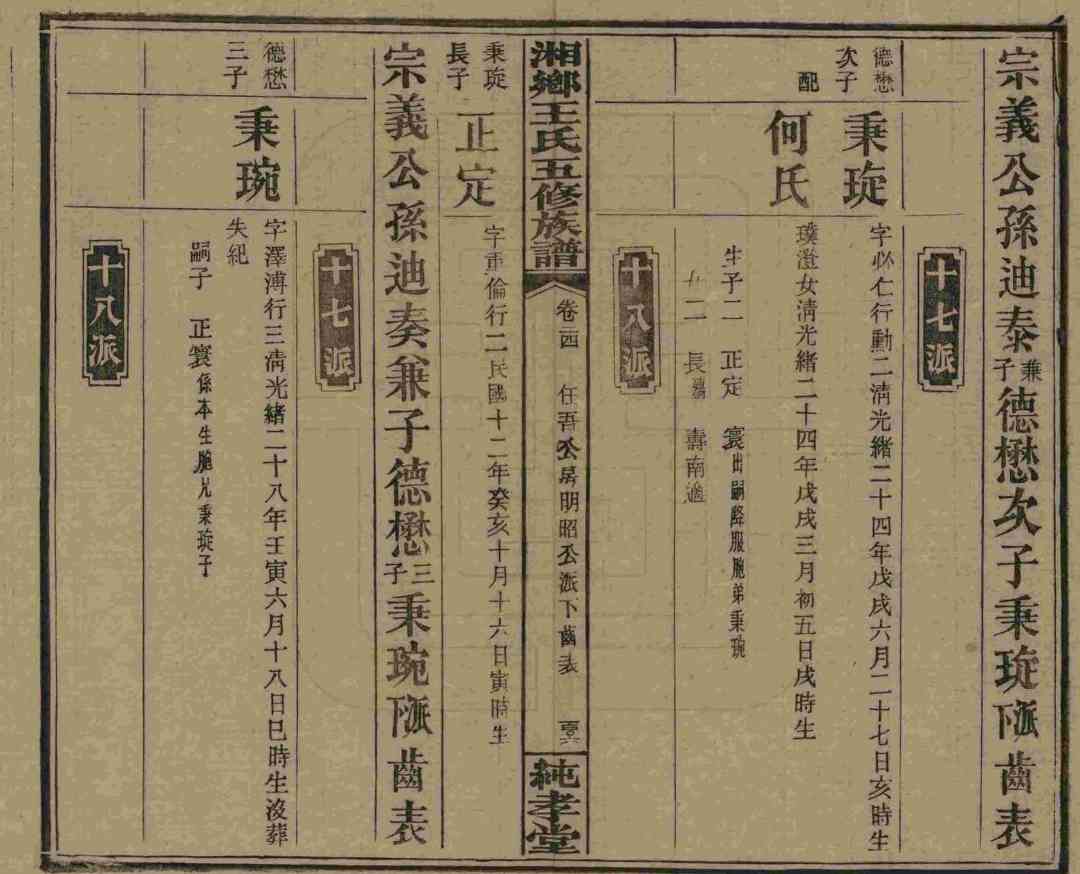 宗義公孫迪泰兼子德懋次子秉琁派下齒表
十七派
德懋次子
秉琁
字必仁行勳二清光緒二十四年戊戌六月二十七日亥時生
配
何氏
璞澄女清光緒二十四年戊戌三月初五日戌時生
生子二 正定 寰出嗣降服胞弟秉琬
女二 長殤 壽南適
十八派
湘鄉王氏五修族譜
卷二四 任吾公房明昭公派下齒表
純孝堂
秉琁長子
正定
字重倫行二民國十二年癸亥十月十六日寅時生
宗義公孫迪奏兼子德懋三子秉琬派下齒表
十七派
德懋三子
秉琬
字澤溥行三清光緒二十八年壬寅六月十八日巳時生沒葬
失紀
嗣子 正寰係本生胞兄秉琁子
十八派